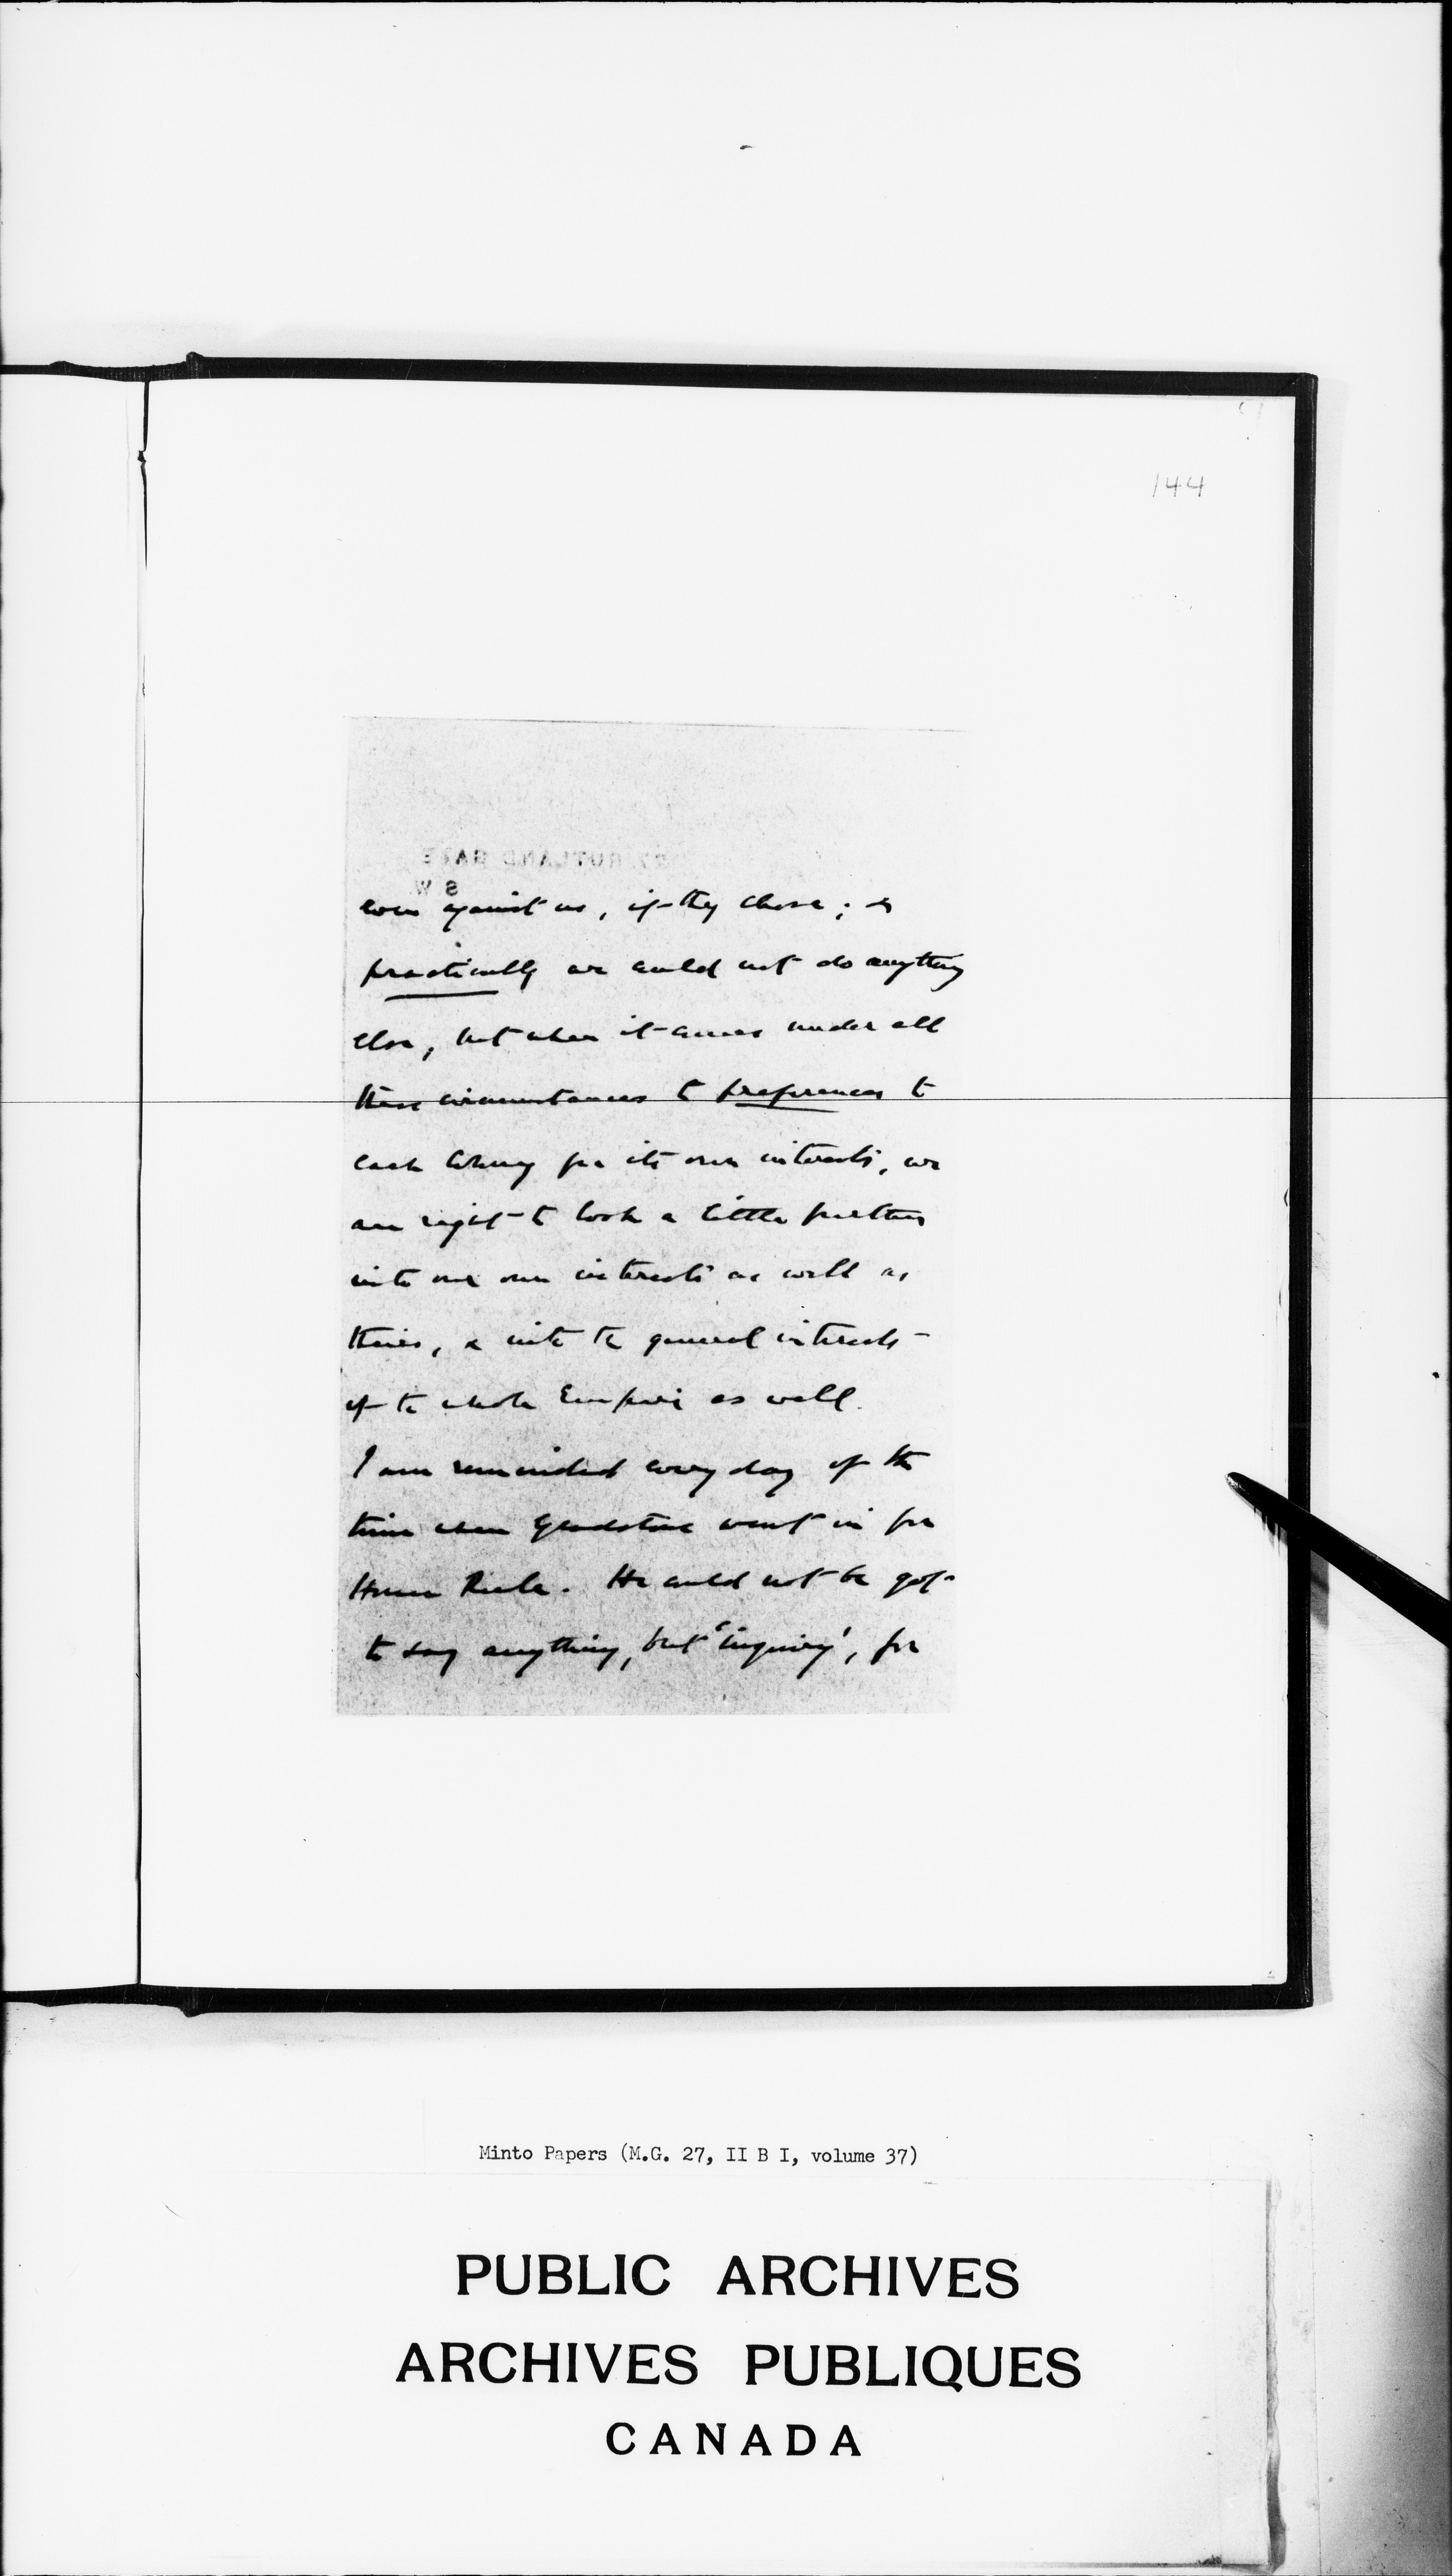 144
27, RUTLAND GATE
S W.
even against us, if they chose; &
practically we could not do anything
else, but when it comes under all
these circumstances to preferences to
each Colony for its own interests, we
are right to look a little further
into our own interests as well as
theirs, & into the general interests
of the whole Empire as well.
I am reminded every day of the
time when Gladstone went in for
Home Rule. He could not be got
to say anything, but 'inquiry', for
Minto Papers (M.G. 27, II B I, volume 37)
PUBLIC ARCHIVES
ARCHIVES PUBLIQUES
CANADA